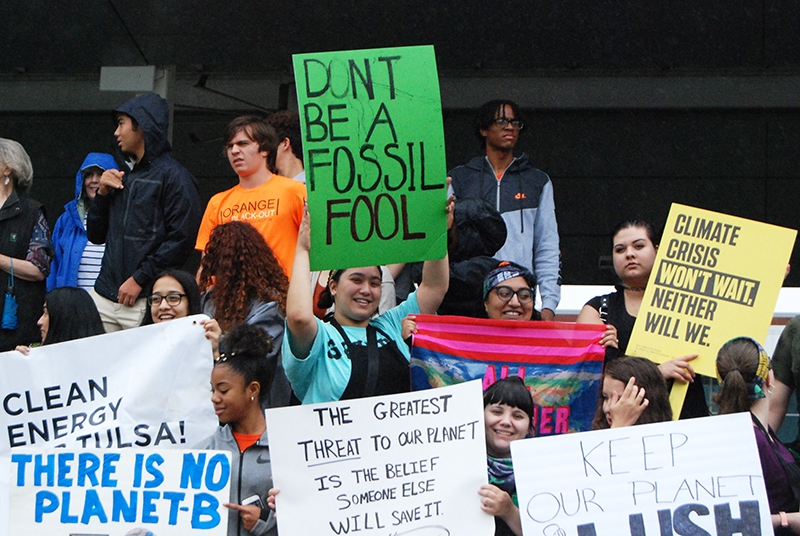 DON'T
BE A
FOSSIL
FOOL
ORANGE
CLIMATE
CRISIS
WON'T WAIT.
NEITHER
WILL WE.
CLEAN
ENERGY
TULSA!
THERE IS NO
PLANET-B
THE GREATEST
THREAT TO OUR PLANET
IS THE BELIEF
SOMEONE ELSE
WILL SAVE IT.
ALL
KEEP
OUR PLANET
LUSH